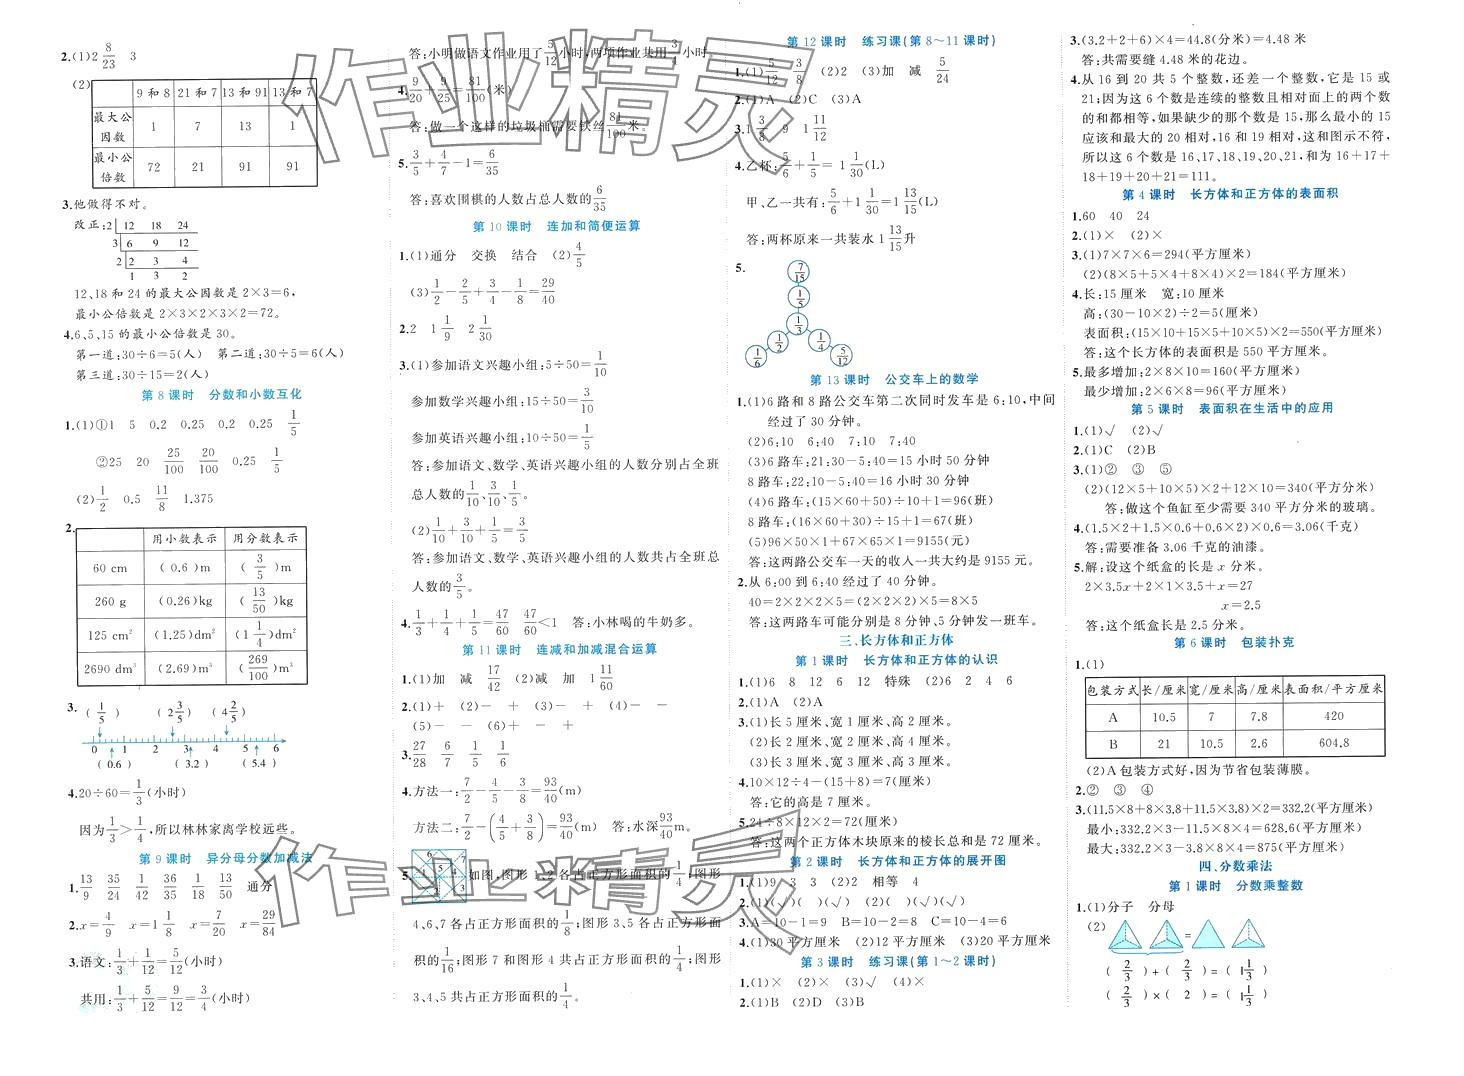 2.(1)2 8/23 3
(2)
9 和 8 21 和 7 13 和 91 13 和 7
最大公因数 1 7 13 1
最小公倍数 72 21 91 91
3.他做得不对。
改正:2 12 18 24
3 6 9 12
2 2 3 4
1 3 2
12、18 和 24 的最大公因数是 2×3=6,
最小公倍数是 2×3×2×3×2=72。
4.6、5、15 的最小公倍数是 30。
第一道:30÷6=5(人) 第二道:30÷5=6(人)
第三道:30÷15=2(人)
第 8 课时 分数和小数互化
1.(1)①1 5 0.2 0.25 0.2 0.25 1/5
②25 20 25/100 20/100 0.25 1/5
(2)1/2 0.5 11/8 1.375
2.
用小数表示 用分数表示
60 cm (0.6)m (3/5)m
260 g (0.26)kg (13/50)kg
125 cm² (1.25)dm² (1 1/4)dm²
2690 dm³ (2.69)m³ (269/100)m³
3. (1/5) (2 3/5) (4 2/5)
0 1 2 3 4 5 6
(0.6) (3.2) (5.4)
4.20÷60=1/3(小时)
因为1/3>1/4,所以林林家离学校远些。
第 9 课时 异分母分数加减法
1.13/9 35/24 1/42 36/35 1/18 13/50 通分
2.x=4/9 x=1 1/8 x=7/20 x=29/84
3.语文:1/3+1/12=5/12(小时)
共用:1/3+5/12=9/12=3/4(小时)
答:小明做语文作业用了5/12小时,两项作业共用3/4小时
4.9/20+9/25=81/100(米)
答:做一个这样的垃圾桶需要铁丝81/100米。
5.3/5+4/7-1=6/35
答:喜欢围棋的人数占总人数的6/35
第 10 课时 连加和简便运算
1.(1)通分 交换 结合 (2)4/5
(3)1/2-2/5+3/4-1/8=29/40
2.2 1 1/9 2 1/30
3.(1)参加语文兴趣小组:5÷50=1/10
参加数学兴趣小组:15÷50=3/10
参加英语兴趣小组:10÷50=1/5
答:参加语文、数学、英语兴趣小组的人数分别占全班
总人数的1/10、3/10、1/5。
(2)1/10+3/10+1/5=3/5
答:参加语文、数学、英语兴趣小组的人数共占全班总
人数的3/5。
4.1/3+1/4+1/5=47/60 47/60<1 答:小林喝的牛奶多。
第 11 课时 连减和加减混合运算
1.(1)加 减 17/42 (2)减 加 1 11/60
2.(1)+ (2)- + (3)- + (4)- -
(5)- - (6)+ - +
3.27/28 6/7 1/5 1/6
4.方法一:7/2-4/5-3/8=93/40(m)
方法二:7/2-(4/5+3/8)=93/40(m) 答:水深93/40m。
5. 如图,图形 1、2 各占正方形面积的1/4;图形
4、6、7 各占正方形面积的1/8;图形 3、5 各占正方形面
积的1/16;图形 7 和图形 4 共占正方形面积的1/4;图形
3、4、5 共占正方形面积的1/4。
第 12 课时 练习课(第 8～11 课时)
1.(1)5/12 3/8 (2)2 (3)加 减 5/24
2.(1)A (2)C (3)A
3.1 3/8 9 1 11/12
4.乙杯:5/6+1/5=1 1/30(L)
甲、乙一共有:5/6+1 1/30=1 13/15(L)
答:两杯原来一共装水 1 13/15升
5.
7/15
1/5
1/3
1/2 1/4
1/6 5/12
第 13 课时 公交车上的数学
1.(1)6 路和 8 路公交车第二次同时发车是 6:10,中间
经过了 30 分钟。
(2)6:10 6:40 7:10 7:40
(3)6 路车:21:30-5:40=15 小时 50 分钟
8 路车:22:10-5:40=16 小时 30 分钟
(4)6 路车:(15×60+50)÷10+1=96(班)
8 路车:(16×60+30)÷15+1=67(班)
(5)96×50×1+67×65×1=9155(元)
答:这两路公交车一天的收入一共大约是 9155 元。
2.从 6:00 到 6:40 经过了 40 分钟。
40=2×2×2×5=(2×2×2)×5=8×5
答:这两路车可能分别是 8 分钟、5 分钟发一班车。
三、长方体和正方体
第 1 课时 长方体和正方体的认识
1.(1)6 8 12 6 12 特殊 (2)6 2 4 6
2.(1)A (2)A
3.(1)长 5 厘米、宽 1 厘米、高 2 厘米。
(2)长 2 厘米、宽 2 厘米、高 4 厘米。
(3)长 3 厘米、宽 3 厘米、高 3 厘米。
4.10×12÷4-(15+8)=7(厘米)
答:它的高是 7 厘米。
5.24÷8×12×2=72(厘米)
答:这两个正方体木块原来的棱长总和是 72 厘米。
第 2 课时 长方体和正方体的展开图
1.(1)9 3 3 (2)2 相等 4
2.(1)(√)( )(√) (2)( )(√)(√)
3.A=10-1=9 B=10-2=8 C=10-4=6
4.(1)30 平方厘米 (2)12 平方厘米 (3)20 平方厘米
第 3 课时 练习课(第 1～2 课时)
1.(1)× (2)× (3)√ (4)×
2.(1)B (2)D (3)B
3.(3.2+2+6)×4=44.8(分米)=4.48 米
答:共需要缝 4.48 米的花边。
4.从 16 到 20 共 5 个整数,还差一个整数,它是 15 或
21;因为这 6 个数是连续的整数且相对面上的两个数
的和都相等,如果缺少的那个数是 15,那么最小的 15
应该和最大的 20 相对,16 和 19 相对,这和图示不符,
所以这 6 个数是 16、17、18、19、20、21,和为 16+17+
18+19+20+21=111。
第 4 课时 长方体和正方体的表面积
1.60 40 24
2.(1)× (2)×
3.(1)7×7×6=294(平方厘米)
(2)(8×5+5×4+8×4)×2=184(平方厘米)
4.长:15 厘米 宽:10 厘米
高:(30-10×2)÷2=5(厘米)
表面积:(15×10+15×5+10×5)×2=550(平方厘米)
答:这个长方体的表面积是 550 平方厘米。
5.最多增加:2×8×10=160(平方厘米)
最少增加:2×6×8=96(平方厘米)
第 5 课时 表面积在生活中的应用
1.(1)√ (2)√
2.(1)C (2)B
3.(1)② ③ ⑤
(2)(12×5+10×5)×2+12×10=340(平方分米)
答:做这个鱼缸至少需要 340 平方分米的玻璃。
4.(1.5×2+1.5×0.6+0.6×2)×0.6=3.06(千克)
答:需要准备 3.06 千克的油漆。
5.解:设这个纸盒的长是 x 分米。
2×3.5x+2×1×3.5+x=27
x=2.5
答:这个纸盒长是 2.5 分米。
第 6 课时 包装扑克
1.(1)
包装方式 长/厘米 宽/厘米 高/厘米 表面积/平方厘米
A 10.5 7 7.8 420
B 21 10.5 2.6 604.8
(2)A 包装方式好,因为节省包装薄膜。
2.② ③ ④
3.(11.5×8+8×3.8+11.5×3.8)×2=332.2(平方厘米)
最小:332.2×3-11.5×8×4=628.6(平方厘米)
最大:332.2×3-3.8×8×4=875(平方厘米)
四、分数乘法
第 1 课时 分数乘整数
1.(1)分子 分母
(2) =
(2/3)+(2/3)=(1 1/3)
(2/3)×(2)=(1 1/3)
作业精灵
作业精灵